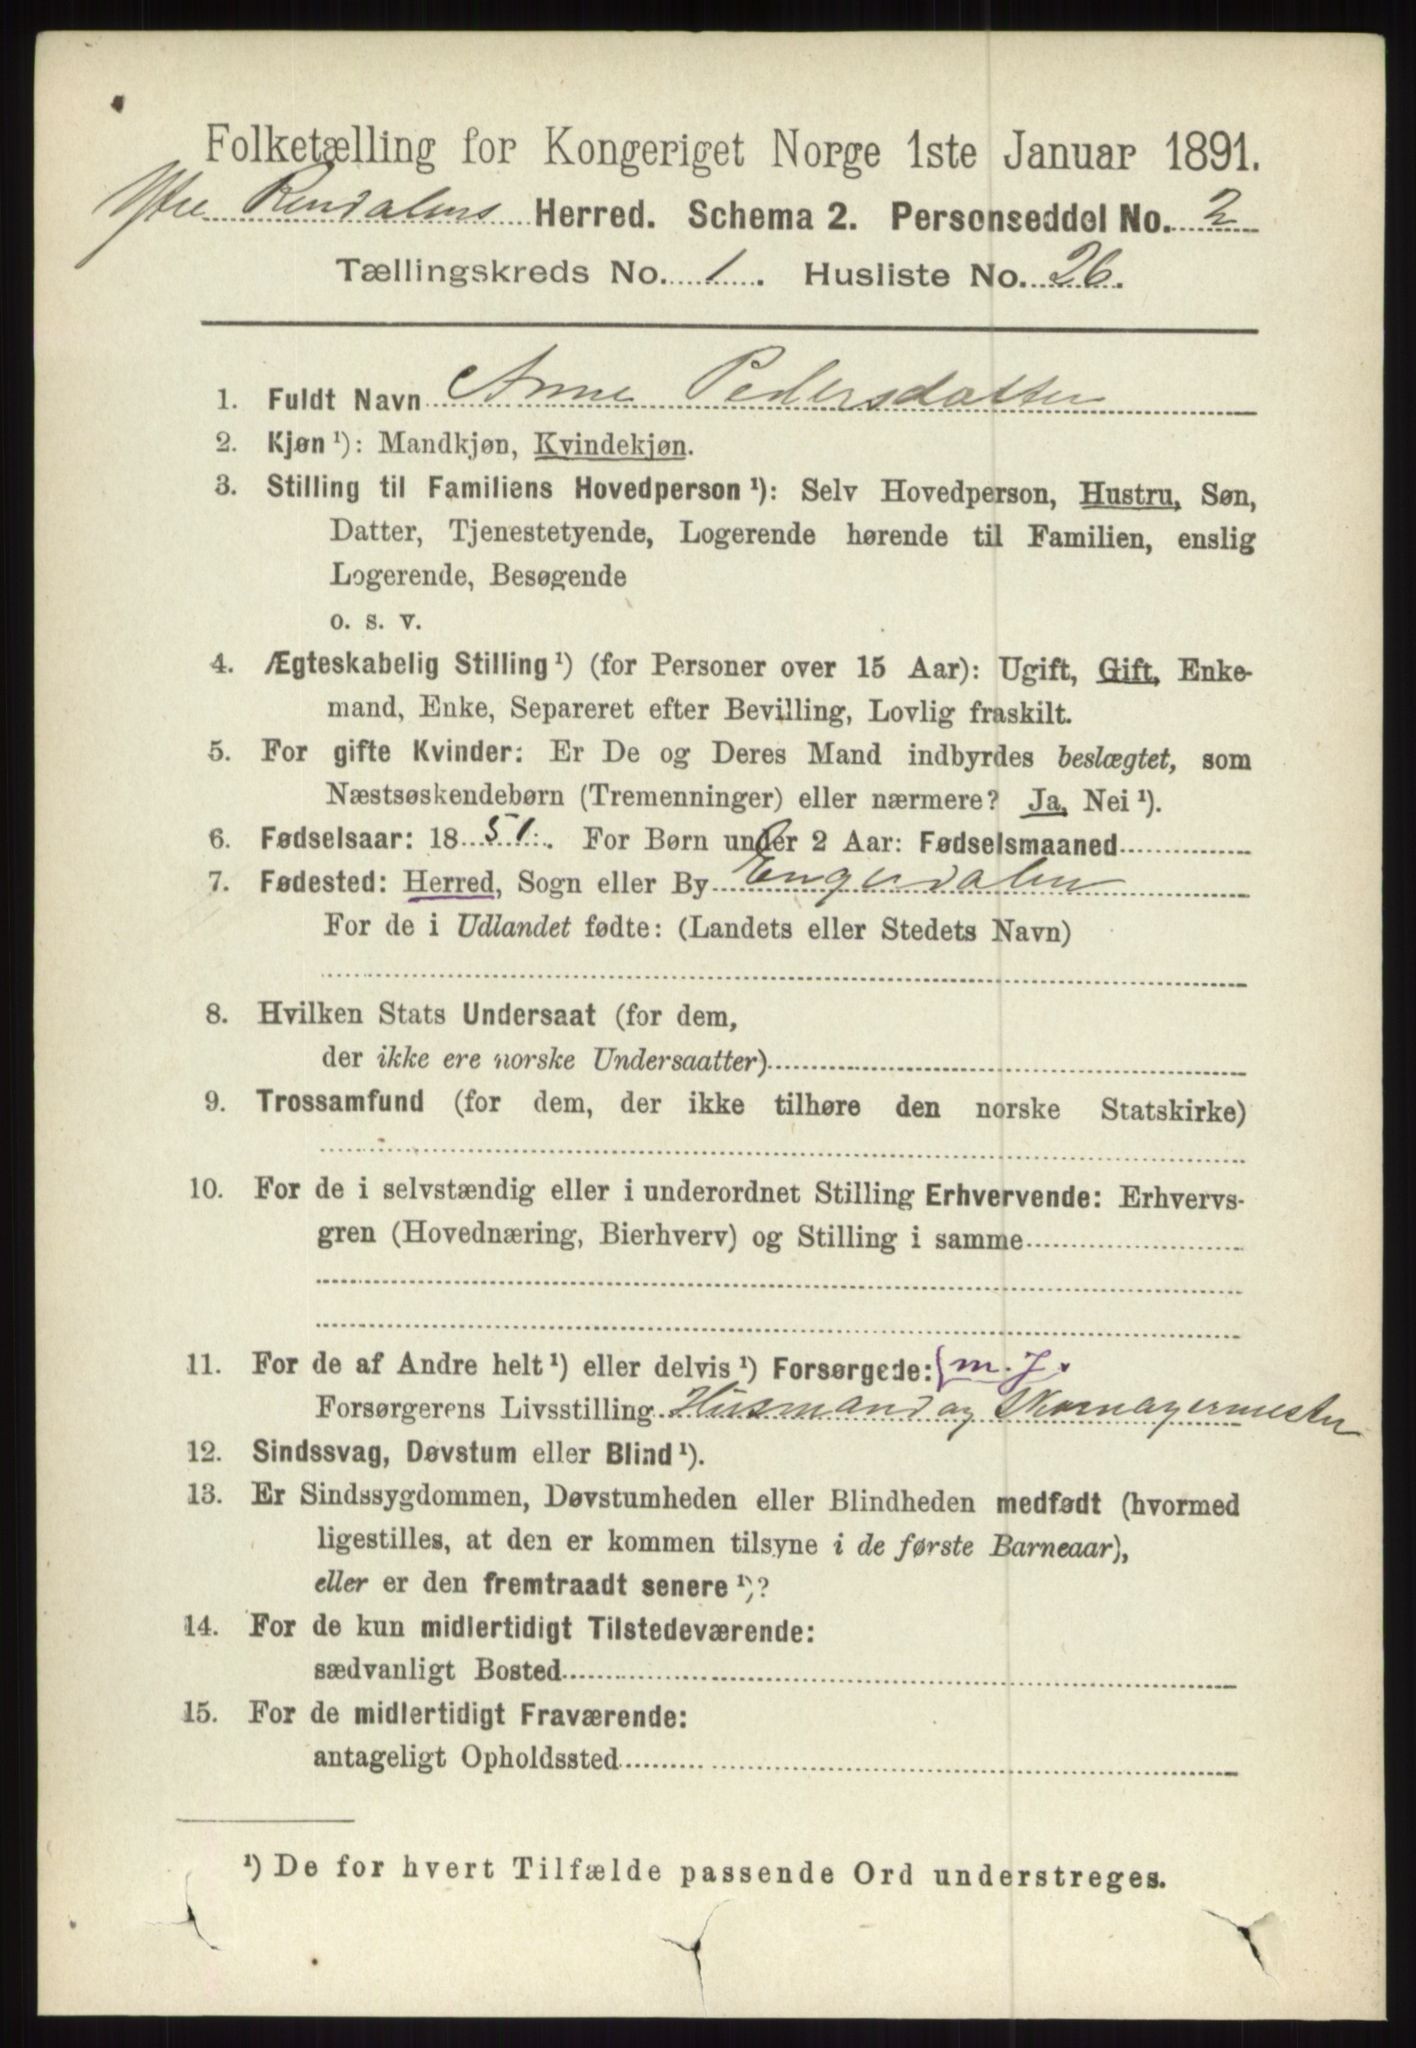 Folketælling for Kongeriget Norge 1ste Januar 1891.
Ytre Rendalens Herred. Schema 2. Personseddel No. 2
Tællingskreds No. 1. Husliste No. 26.
1. Fuldt Navn Anne Pedersdatter
2. Kjøn ¹): Mandkjøn, Kvindekjøn.
3. Stilling til Familiens Hovedperson ¹): Selv Hovedperson, Hustru, Søn,
Datter, Tjenestetyende, Logerende hørende til Familien, enslig
Logerende, Besøgende
o. s. v.
4. Ægteskabelig Stilling ¹) (for Personer over 15 Aar): Ugift, Gift, Enke-
mand, Enke, Separeret efter Bevilling, Lovlig fraskilt.
5. For gifte Kvinder: Er De og Deres Mand indbyrdes beslægtet, som
Næstsøskendebørn (Tremenninger) eller nærmere? Ja, Nei ¹).
6. Fødselsaar: 1851. For Børn under 2 Aar: Fødselsmaaned
7. Fødested: Herred, Sogn eller By Engerdalen
For de i Udlandet fødte: (Landets eller Stedets Navn)
8. Hvilken Stats Undersaat (for dem,
der ikke ere norske Undersaatter)
9. Trossamfund (for dem, der ikke tilhøre den norske Statskirke)
10. For de i selvstændig eller i underordnet Stilling Erhvervende: Erhvervs-
gren (Hovednæring, Bierhverv) og Stilling i samme
11. For de af Andre helt ¹) eller delvis ¹) Forsørgede: { m. J.
Forsørgerens Livsstilling Husmand og Skomagermester
12. Sindssvag, Døvstum eller Blind ¹).
13. Er Sindssygdommen, Døvstumheden eller Blindheden medfødt (hvormed
ligestilles, at den er kommen tilsyne i de første Barneaar),
eller er den fremtraadt senere ¹)?
14. For de kun midlertidigt Tilstedeværende:
sædvanligt Bosted
15. For de midlertidigt Fraværende:
antageligt Opholdssted
¹) De for hvert Tilfælde passende Ord understreges.